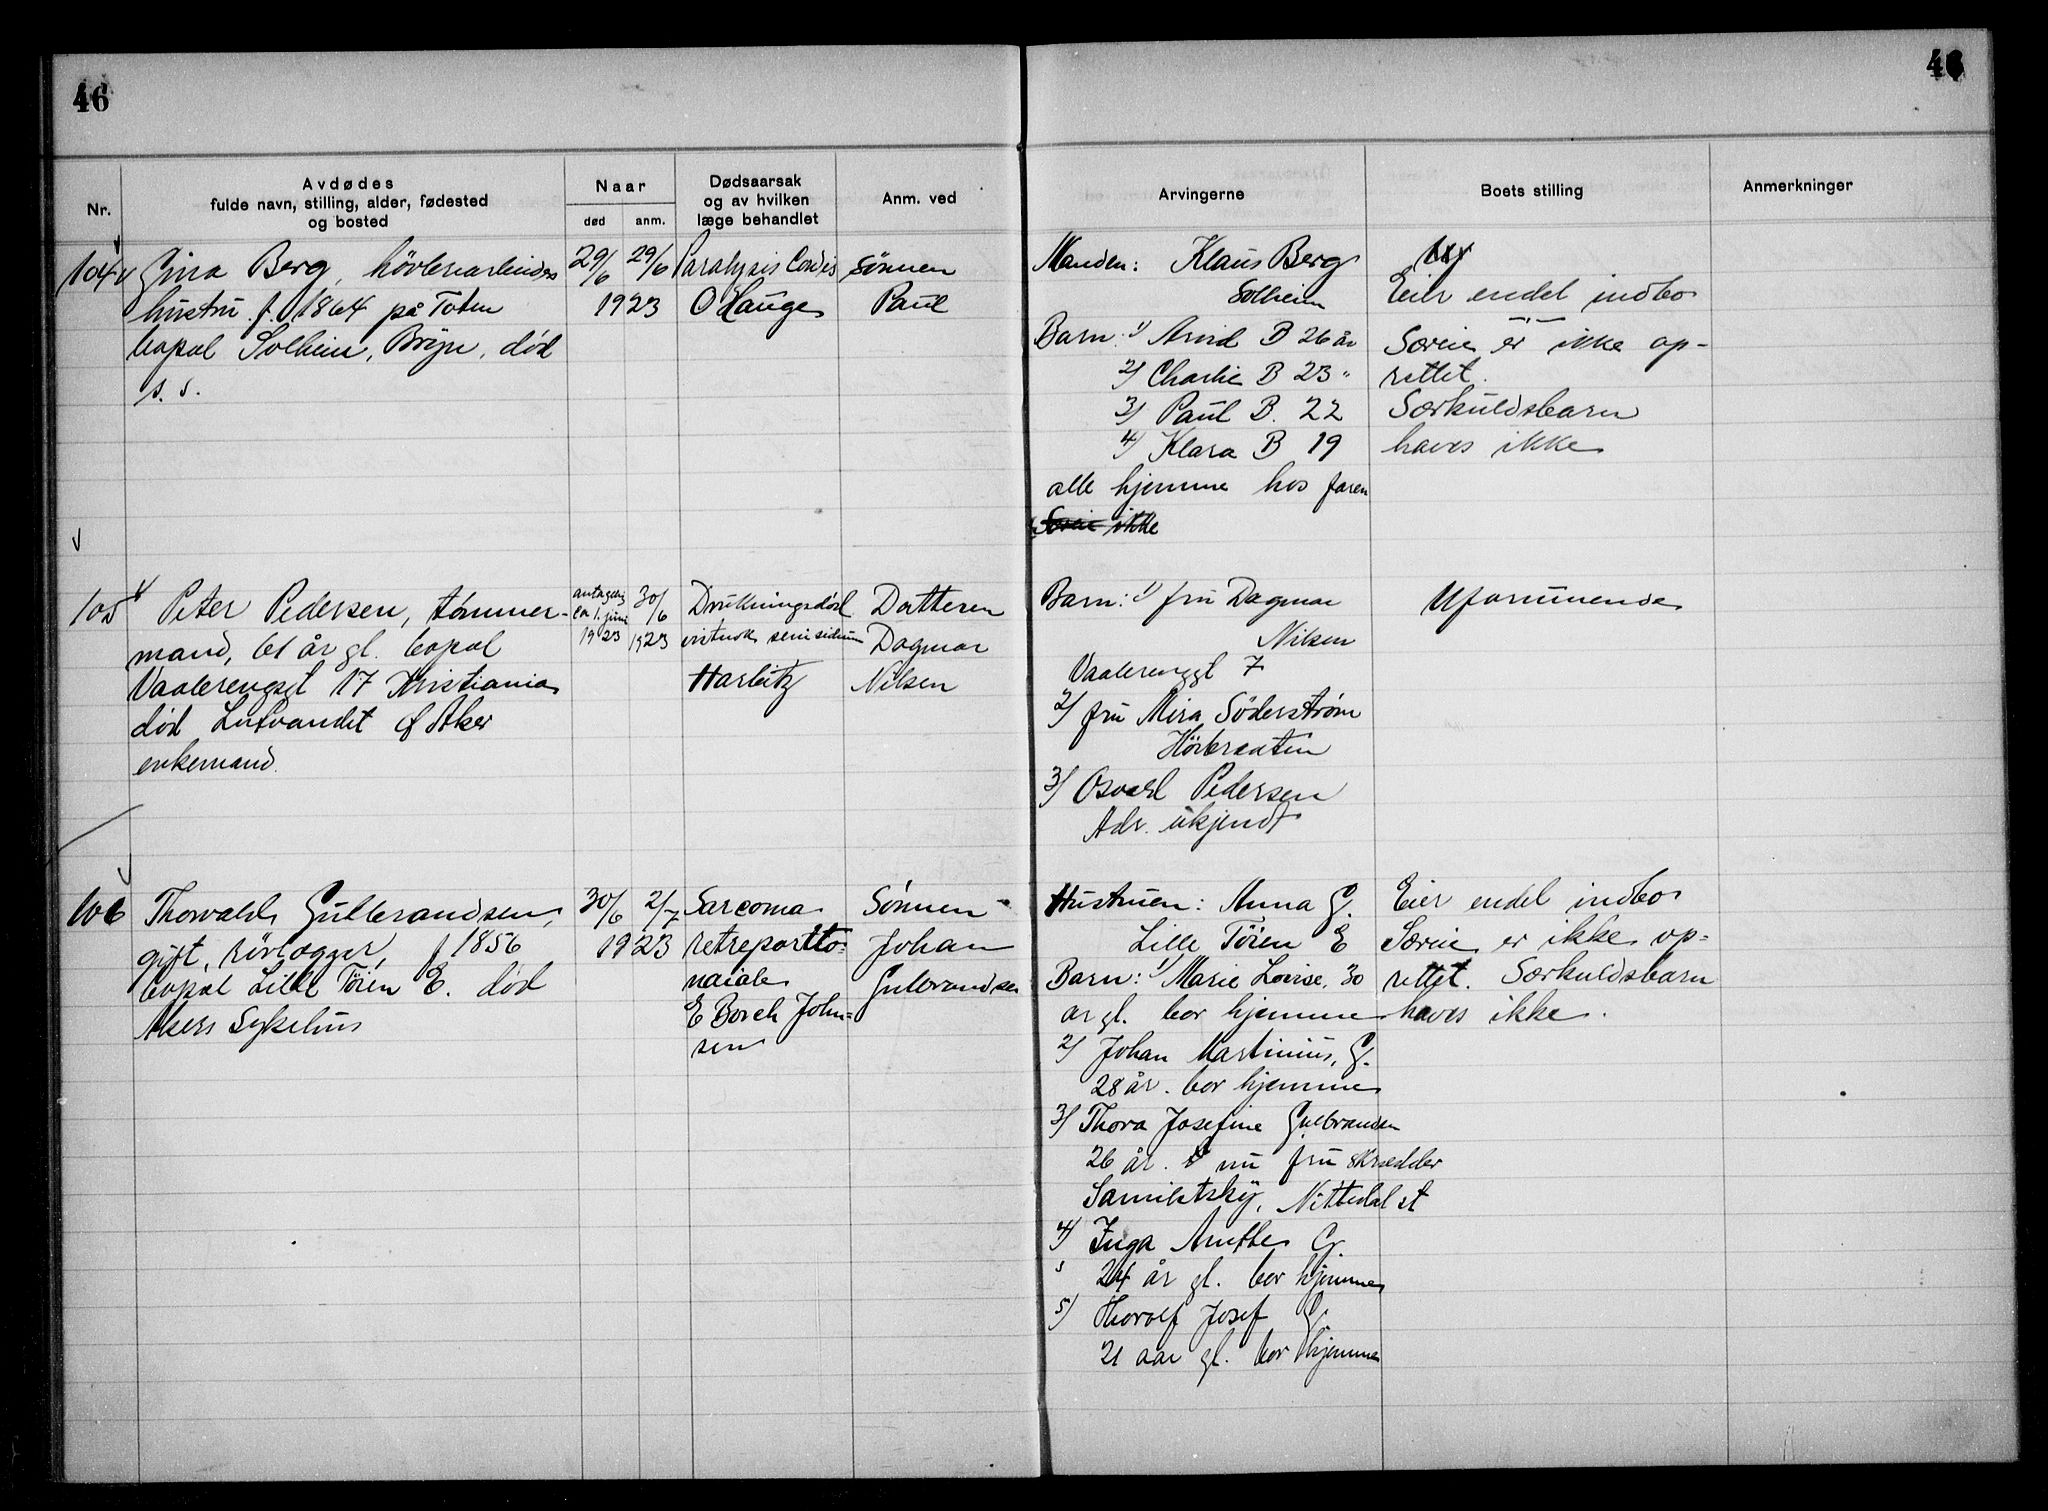 46
46
Nr.
Avdødes
fulde navn, stilling, alder, fødested
og bosted
Naar
død
anm.
Dødsaarsak
og av hvilken
læge behandlet
Anm. ved
Arvingerne
Boets stilling
Anmerkninger
104
Gina Berg, høvleriarbeiders
hustru f. 1864 på Toten
bopæl Solheim, Bryn, død
s. s.
29/6 29/6
1923
Paralysis Cordis
O Hauge
Sønnen
Paul
Manden: Klaus Berg
Solheim
Barn: 1) Arvid B 26 år
2) Charlie B 23 "
3) Paul B. 22
4) Klara B 19
alle hjemme hos faren
Særeie ikke
Eier endel indbo
Særeie er ikke op-
rettet.
Særkuldsbarn
haves ikke
105
Peter Pedersen, tømmer-
mand, 61 år gl. bopæl
Vaalerengsgt 17 Kristiania
død Lutvandet Ø Aker
enkemand.
antagelig
ca 1. juni
1923
30/6
1923
Drukningsdød
vistnok
Harbitz
Datteren
Dagmar
Nilsen
Barn: 1) fru Dagmar
Nilsen
Vaalerenggt 7
2) fru Mira Söderstrøm
Høibraaten
3) Osvald Pedersen
Adr. ukjendt
Uformuende
106
Thorvald Gulbrandsen,
gift, rørlægger, f 1856
bopæl Lille Tøien E. død
Akers Sykehus
30/6 2/7
1923
Sarcoma
retroperitto-
neiale
E Borch John-
sen
Sønnen
Johan
Gulbrandsen
Hustruen: Anna G.
Lille Tøien E
Barn: 1) Marie Lovise, 30
år gl. bor hjemme
2) Johan Martinius, G.
28 år. bor hjemme
3) Thora Josefine Gulbrandsen
26 år. nu fru skrædder
Nittedal st
4) Inga Anethe G.
24 år gl. bor hjemme
5) Thorolf Josef G.
21 aar gl. bor hjemme
Eier endel indbo
Særeie er ikke op-
rettet. Særkuldsbarn
haves ikke.